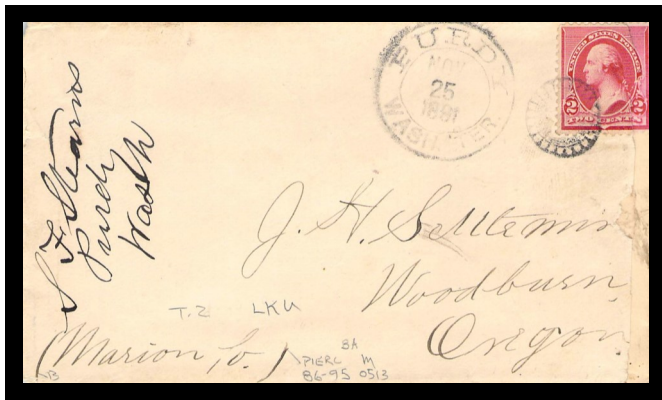 S. F. Stearns
Purdy
Wash
PURDY
NOV
25
1891
WASH. TER.
UNITED STATES POSTAGE
2 2
TWO CENTS
J. H. Settlemier
Woodburn,
Oregon
(Marion Co.)
T.2 LKU
BA
PIERC M
86-95 0513